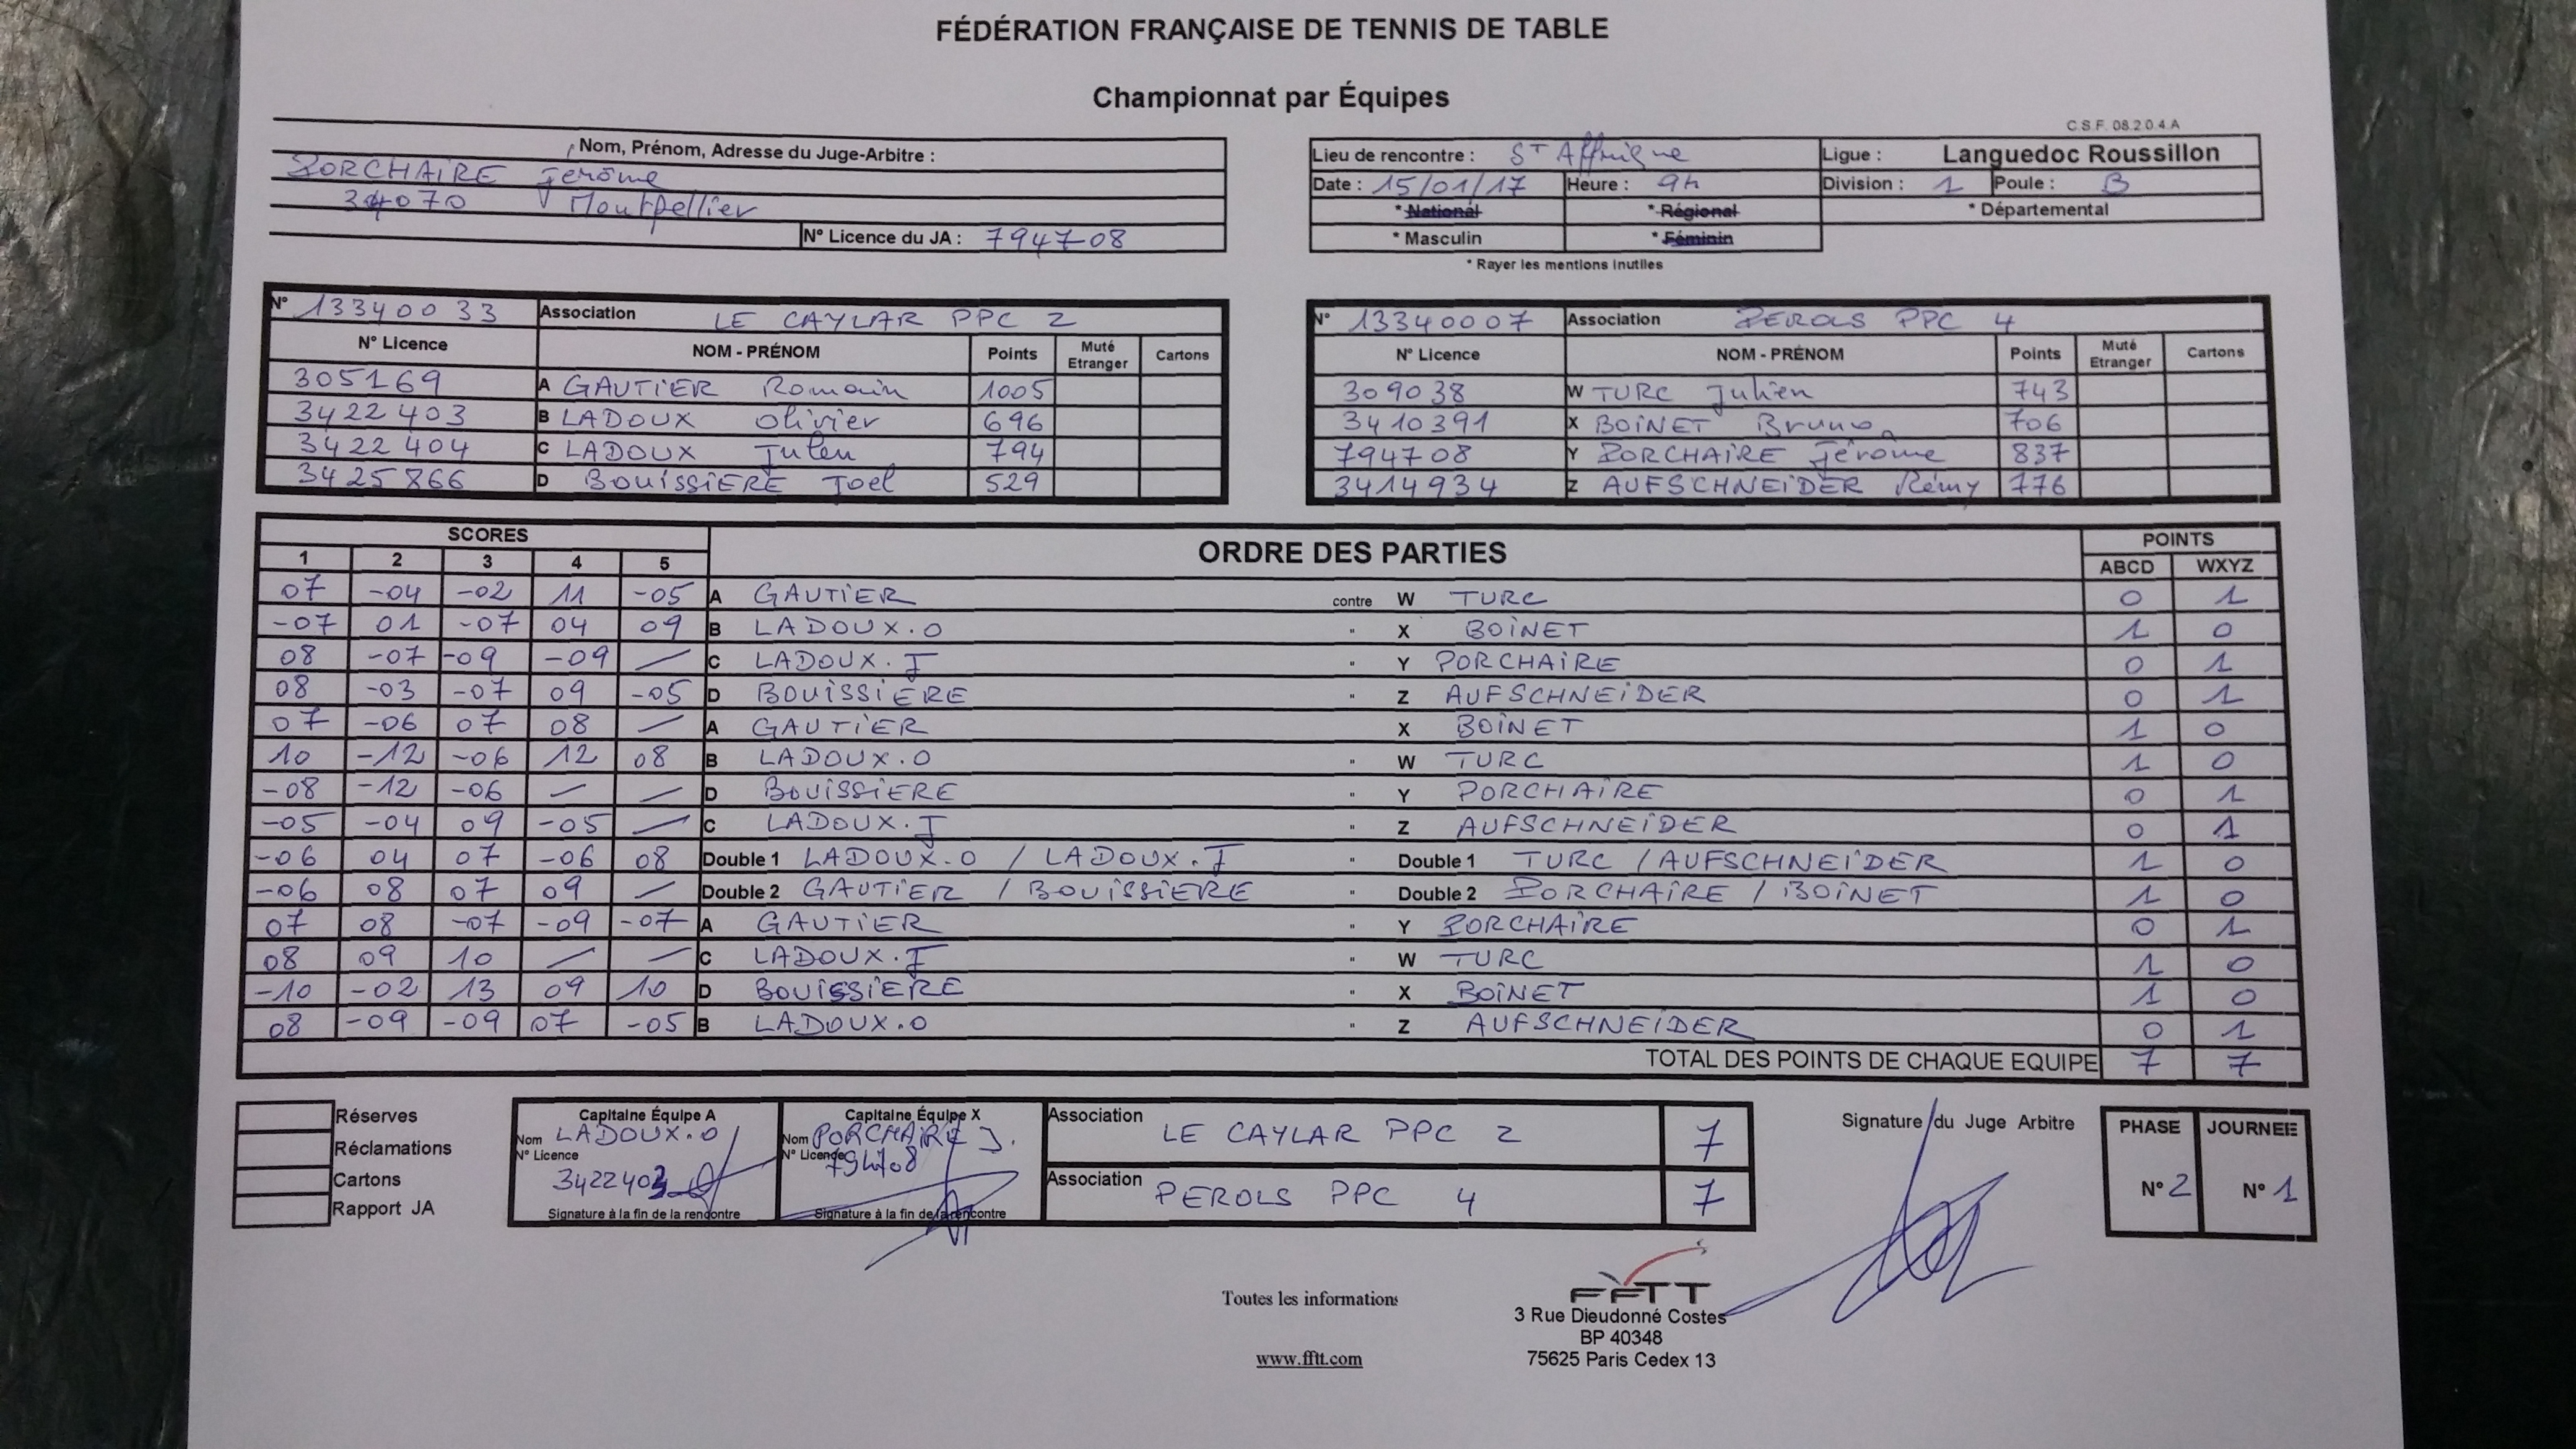 FÉDÉRATION FRANÇAISE DE TENNIS DE TABLE
Championnat par Équipes
C.S.F. 08.2.0.4.A
Nom, Prénom, Adresse du Juge-Arbitre :
PORCHAIRE Jérôme
34070 Montpellier
N° Licence du JA : 794708
Lieu de rencontre : ST Affrique Ligue : Languedoc Roussillon
Date : 15/01/17 Heure : 9h Division : 1 Poule : B
* National * Régional * Départemental
* Masculin * Féminin
* Rayer les mentions inutiles
N° 13340033 Association LE CAYLAR PPC 2
N° Licence NOM - PRÉNOM Points Muté Etranger Cartons
305169 A GAUTIER Romain 1005
3422403 B LADOUX Olivier 696
3422404 C LADOUX Julen 794
3425866 D BOUISSIERE Joel 529
N° 13340007 Association PEROLS PPC 4
N° Licence NOM - PRÉNOM Points Muté Etranger Cartons
309038 W TURC Julien 743
3410391 X BOINET Bruno 706
794708 Y PORCHAIRE Jérôme 837
3414934 Z AUFSCHNEIDER Rémy 776
SCORES ORDRE DES PARTIES POINTS
1 2 3 4 5 ABCD WXYZ
07 -04 -02 11 -05 A GAUTIER contre W TURC 0 1
-07 01 -07 04 09 B LADOUX.O " X BOINET 1 0
08 -07 -09 -09 / C LADOUX.J " Y PORCHAIRE 0 1
08 -03 -07 09 -05 D BOUISSIERE " Z AUFSCHNEIDER 0 1
07 -06 07 08 / A GAUTIER X BOINET 1 0
10 -12 -06 12 08 B LADOUX.O " W TURC 1 0
-08 -12 -06 / / D BOUISSIERE " Y PORCHAIRE 0 1
-05 -04 09 -05 / C LADOUX.J " Z AUFSCHNEIDER 0 1
-06 04 07 -06 08 Double 1 LADOUX.O / LADOUX.J " Double 1 TURC / AUFSCHNEIDER 1 0
-06 08 07 09 / Double 2 GAUTIER / BOUISSIERE " Double 2 PORCHAIRE / BOINET 1 0
07 08 -07 -09 -07 A GAUTIER " Y PORCHAIRE 0 1
08 09 10 / / C LADOUX.J " W TURC 1 0
-10 -02 13 09 10 D BOUISSIERE " X BOINET 1 0
08 -09 -09 07 -05 B LADOUX.O " Z AUFSCHNEIDER 0 1
TOTAL DES POINTS DE CHAQUE EQUIPE 7 7
Réserves
Réclamations
Cartons
Rapport JA
Capitaine Équipe A
Nom LADOUX.O
N° Licence
3422403
Signature à la fin de la rencontre
Capitaine Équipe X
Nom PORCHAIRE J.
N° Licence 794708
Signature à la fin de la rencontre
Association LE CAYLAR PPC 2 7
Association PEROLS PPC 4 7
Signature du Juge Arbitre
PHASE JOURNEE
N° 2 N° 1
Toutes les informations
www.fftt.com
FFTT
3 Rue Dieudonné Costes
BP 40348
75625 Paris Cedex 13